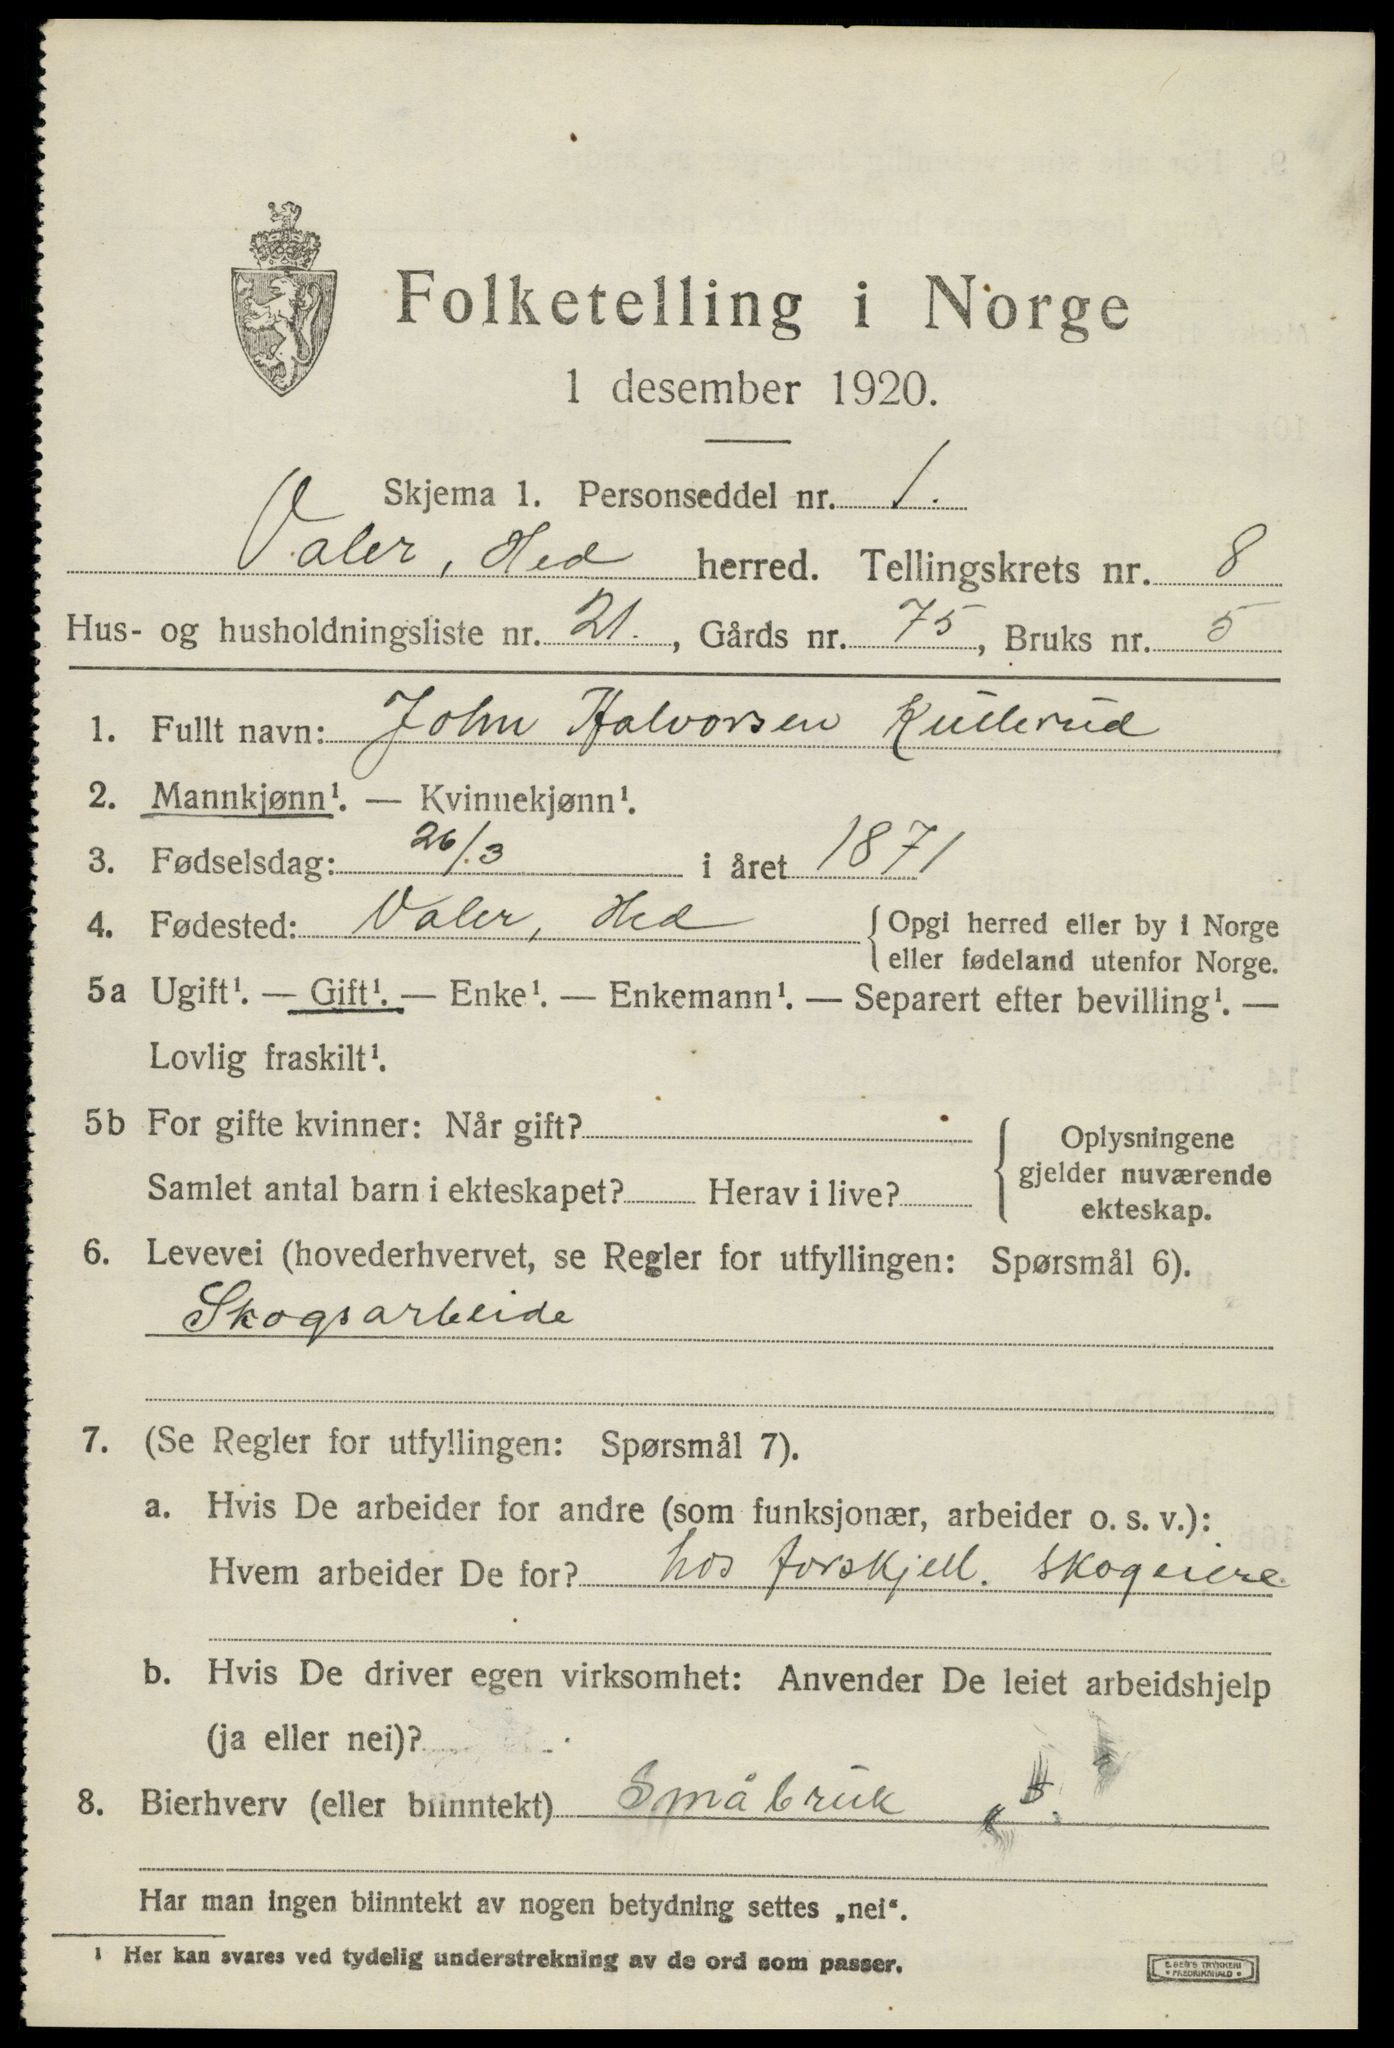 Folketelling i Norge
1 desember 1920.
Skjema 1. Personseddel nr. 1.
Valer, Hed herred. Tellingskrets nr. 8
Hus- og husholdningsliste nr. 21., Gårds nr. 75, Bruks nr. 5
1. Fullt navn: John Halvorsen Kullerud
2. Mannkjønn¹. — Kvinnekjønn¹.
3. Fødselsdag: 26/3 i året 1871
4. Fødested: Valer, Hed { Opgi herred eller by i Norge
eller fødeland utenfor Norge.
5a Ugift¹. — Gift¹. — Enke¹. — Enkemann¹. — Separert efter bevilling¹. —
Lovlig fraskilt¹.
5b For gifte kvinner: Når gift?
Samlet antal barn i ekteskapet? Herav i live?
{ Oplysningene
gjelder nuværende
ekteskap.
6. Levevei (hovederhvervet, se Regler for utfyllingen: Spørsmål 6).
Skogsarbeide
7. (Se Regler for utfyllingen: Spørsmål 7).
a. Hvis De arbeider for andre (som funksjonær, arbeider o. s. v.):
Hvem arbeider De for? hos forskjell. skogeiere
b. Hvis De driver egen virksomhet: Anvender De leiet arbeidshjelp
(ja eller nei)?
8. Bierhverv (eller biinntekt) Småbruk „ S.
Har man ingen biinntekt av nogen betydning settes „nei“.
¹ Her kan svares ved tydelig understrekning av de ord som passer.
E. SEM'S TRYKKERI
• FREDRIKSHALD •